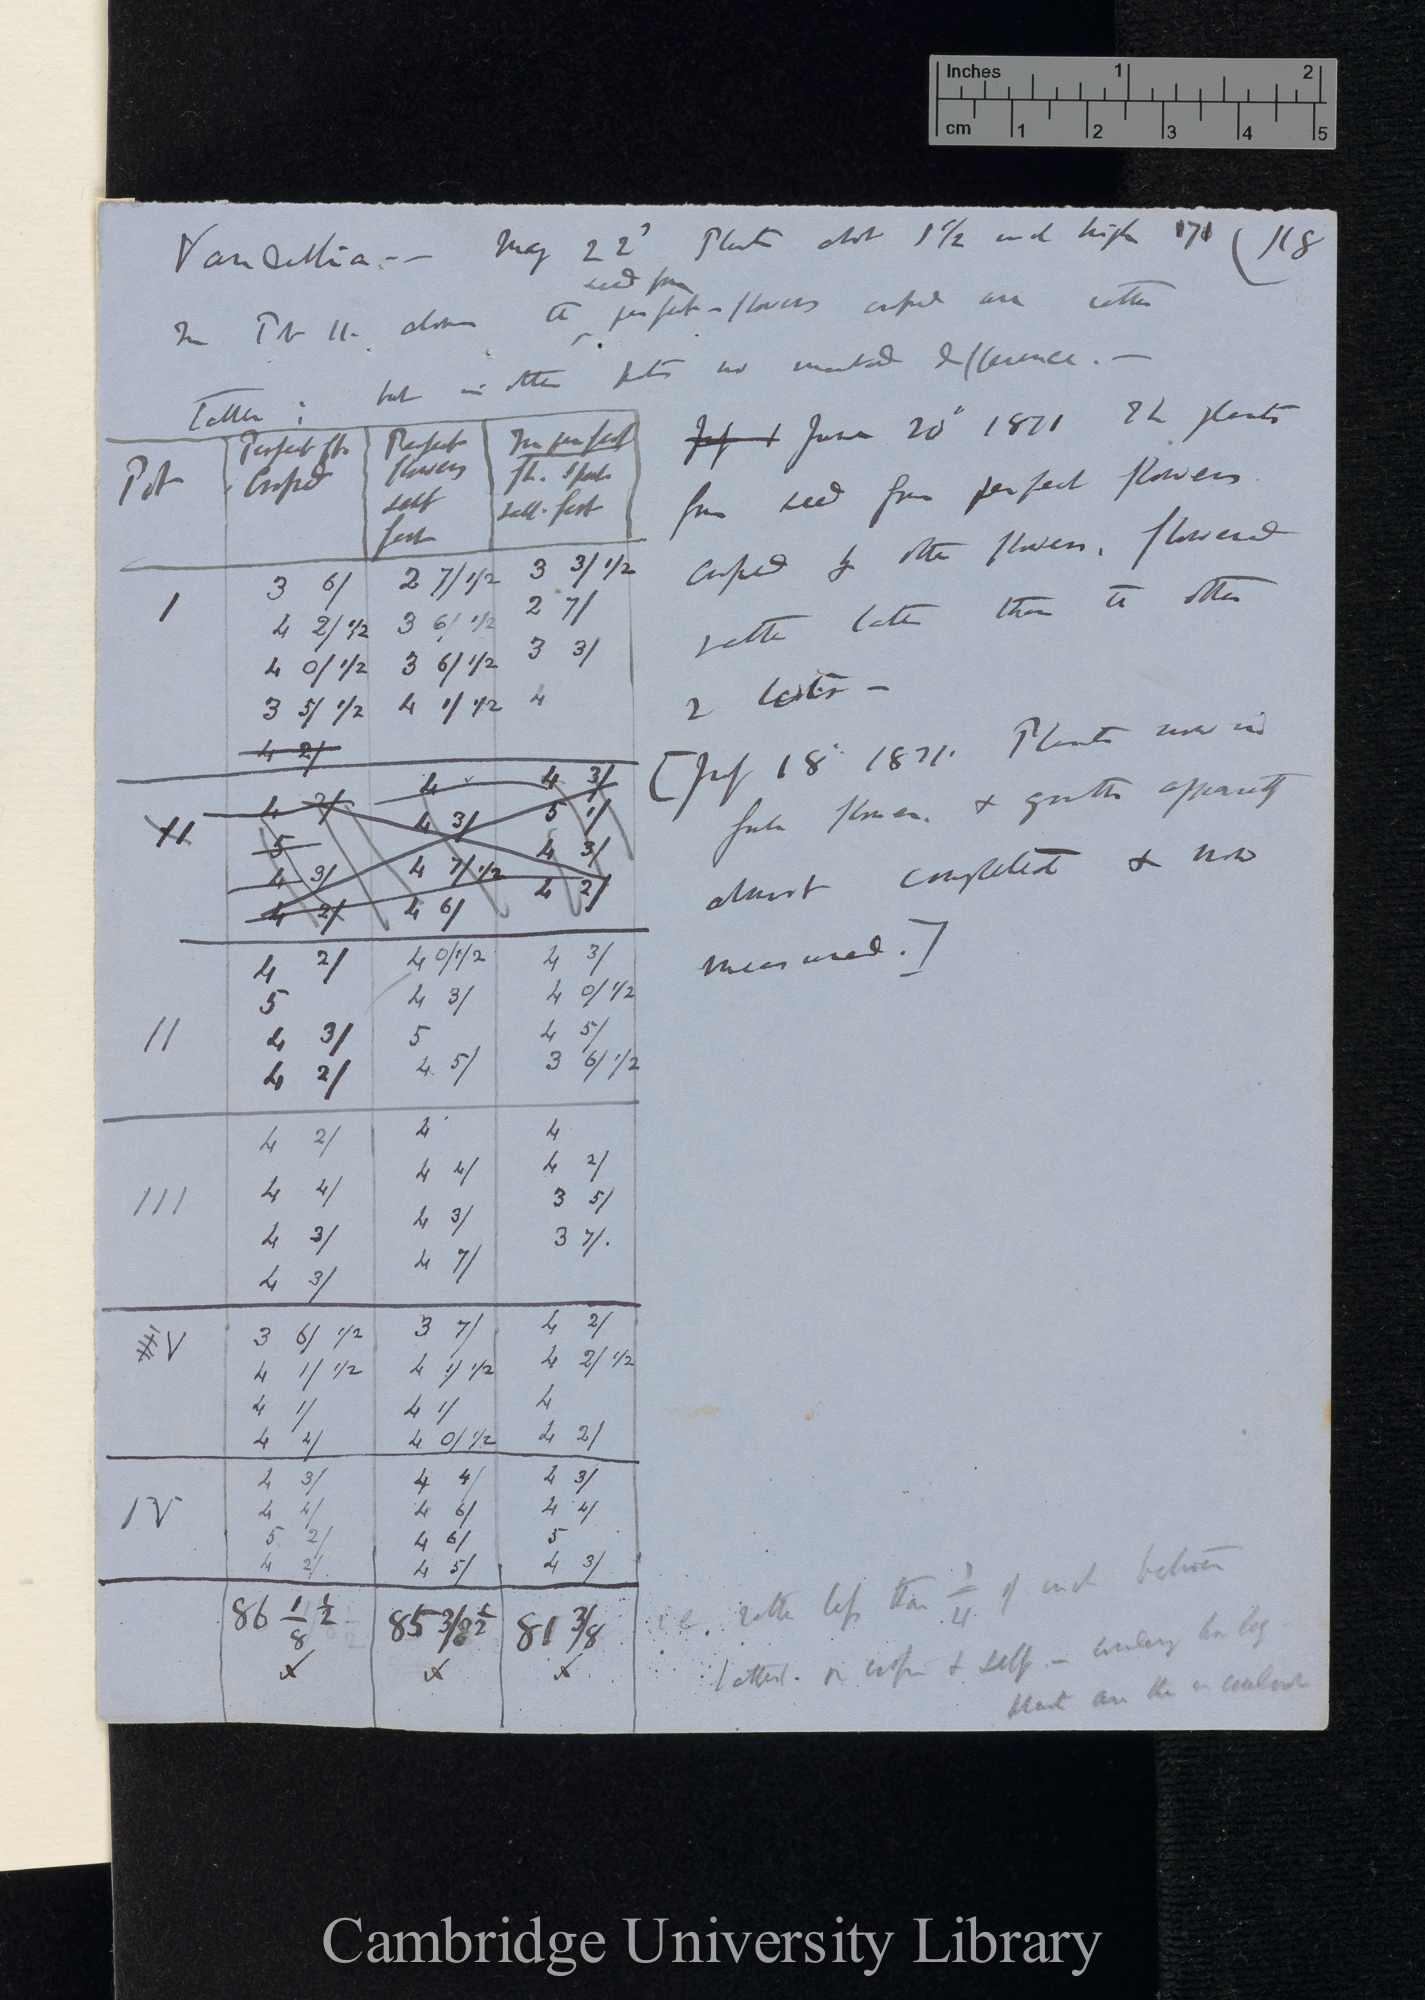 Inches 1 2
cm 1 2 3 4 5
Vandellia -- May 22d Plants about 1 1/2 inch high 171 (118
seed from
In Pot II. alone the perfect-flowers crossed are rather
taller; but in other pots no marked difference. —
Pot
Perfect fls Crossed
Perfect flowers self fert
Imperfect fls. spont self-fert
I
3 6/ 2 7/1/2 3 3/1/2
4 2/1/2 3 6/1/2 2 7/
4 0/1/2 3 6/1/2 3 3/
3 5/1/2 4 1/1/2 4
4 2/
II
4 2/ 4 4 3/
5 4 3/ 5 1/
4 3/ 4 7/1/2 4 3/
4 2/ 4 6/ 4 2/
II
4 2/ 4 0/1/2 4 3/
5 4 3/ 4 0/1/2
4 3/ 5 4 5/
4 2/ 4 5/ 3 6/1/2
III
4 2/ 4 4
4 4/ 4 4/ 4 2/
4 3/ 4 3/ 3 5/
4 3/ 4 7/ 3 7/.
V
3 6/1/2 3 7/ 4 2/
4 1/1/2 4 1/1/2 4 2/1/2
4 1/ 4 1/ 4
4 4/ 4 0/1/2 4 2/
IV
4 3/ 4 4/ 4 3/
4 4/ 4 6/ 4 4/
5 2/ 4 6/ 5
4 2/ 4 5/ 4 3/
86 1/8 1/2 85 3/8 1/2 81 3/8
x x x
June 20th 1871 The plants
from seed from perfect flowers
crossed by other flowers, flowered
rather later than the other
2 lots —
[July 18th 1871. Plants now in
full flower, & growth apparently
almost completed & now
measured.]
i.e. rather less than 1/4 of inch between
tallest. or crossed & self —